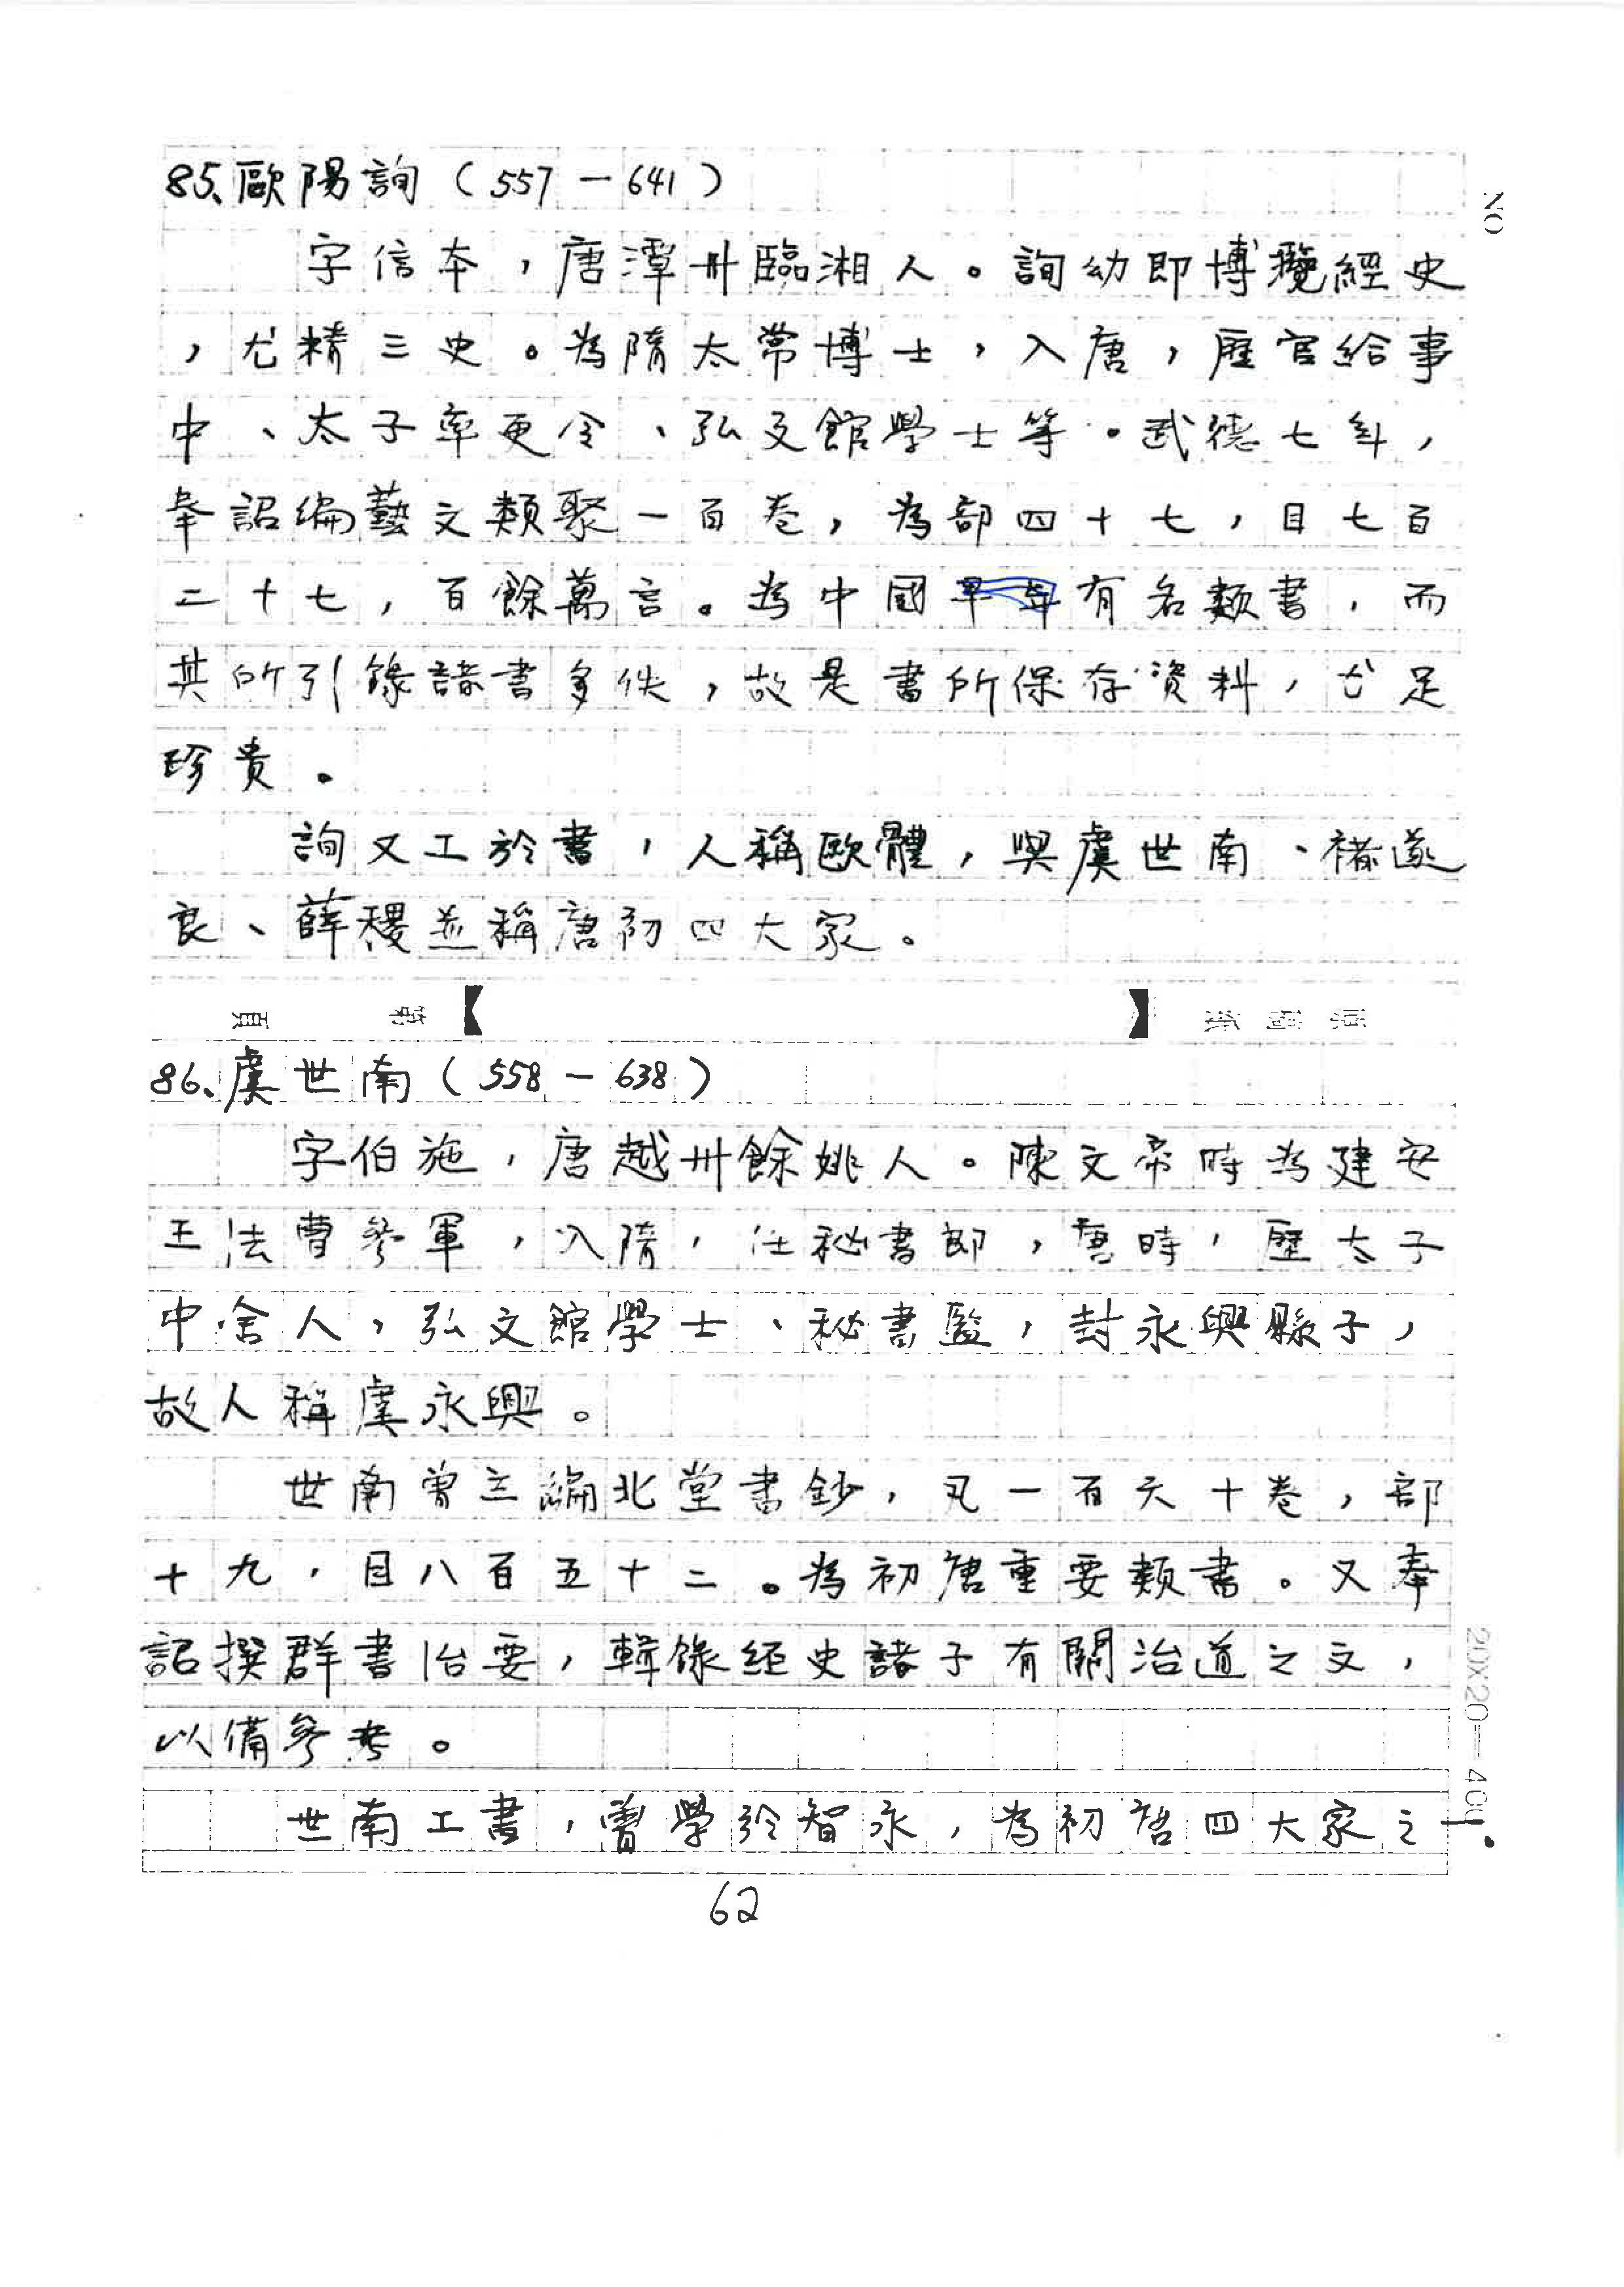 85、歐陽詢（557－641）
字信本，唐潭州臨湘人。詢幼即博覽經史
，尤精三史。為隋太常博士，入唐，歷官給事
中、太子率更令、弘文館學士等。武德七年，
奉詔編藝文類聚一百卷，為部四十七，目七百
二十七，百餘萬言。為中國有名類書，而
其所引錄諸書多佚，故是書所保存資料，尤足
珍貴。
詢又工於書，人稱歐體，與虞世南、褚遂
良、薛稷並稱唐初四大家。
86、虞世南（558－638）
字伯施，唐越州餘姚人。陳文帝時為建安
王法曹參軍，入隋，任秘書郎，唐時，歷太子
中舍人，弘文館學士、秘書監，封永興縣子，
故人稱虞永興。
世南曾主編北堂書鈔，凡一百六十卷，部
十九，目八百五十二。為初唐重要類書。又奉
詔撰群書治要，輯錄經史諸子有關治道之文，
以備參考。
世南工書，曾學於智永，為初唐四大家之一。
62
NO
第 頁
原稿紙
20X20=400